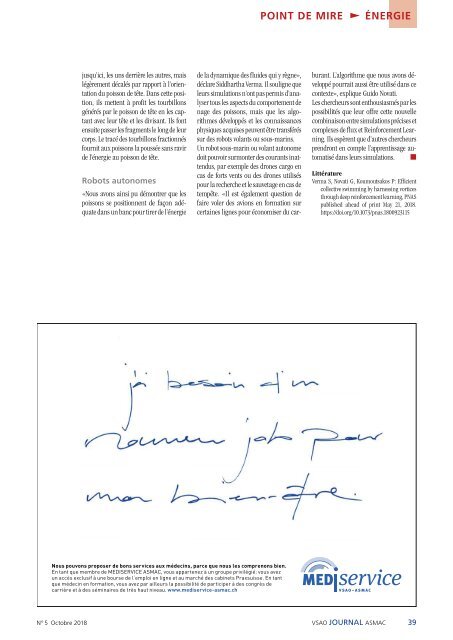 POINT DE MIRE ► ÉNERGIE
jusqu'ici, les uns derrière les autres, mais
légèrement décalés par rapport à l'orien-
tation du poisson de tête. Dans cette posi-
tion, ils mettent à profit les tourbillons
générés par le poisson de tête en les cap-
tant avec leur tête et les divisant. Ils font
ensuite passer les fragments le long de leur
corps. Le tracé des tourbillons fractionnés
fournit aux poissons la poussée sans ravir
de l'énergie au poisson de tête.
Robots autonomes
«Nous avons ainsi pu démontrer que les
poissons se positionnent de façon adé-
quate dans un banc pour tirer de l'énergie
de la dynamique des fluides qui y règne»,
déclare Siddhartha Verma. Il souligne que
leurs simulations n'ont pas permis d'ana-
lyser tous les aspects du comportement de
nage des poissons, mais que les algo-
rithmes développés et les connaissances
physiques acquises peuvent être transférés
sur des robots volants ou sous-marins.
Un robot sous-marin ou volant autonome
doit pouvoir surmonter des courants inat-
tendus, par exemple des drones cargo en
cas de forts vents ou des drones utilisés
pour la recherche et le sauvetage en cas de
tempête. «Il est également question de
faire voler des avions en formation sur
certaines lignes pour économiser du car-
burant. L'algorithme que nous avons dé-
veloppé pourrait aussi être utilisé dans ce
contexte», explique Guido Novati.
Les chercheurs sont enthousiasmés par les
possibilités que leur offre cette nouvelle
combinaison entre simulations précises et
complexes de flux et Reinforcement Lear-
ning. Ils espèrent que d'autres chercheurs
prendront en compte l'apprentissage au-
tomatisé dans leurs simulations.
Littérature
Verma S, Novati G, Koumoutsakos P: Efficient
collective swimming by harnessing vortices
through deep reinforcement learning, PNAS
published ahead of print May 21, 2018.
https://doi.org/10.1073/pnas.1800923115
j'ai besoin d'un
nouveau job pour
mon bien-être.
Nous pouvons proposer de bons services aux médecins, parce que nous les comprenons bien.
En tant que membre de MEDISERVICE ASMAC, vous appartenez à un groupe privilégié: vous avez
un accès exclusif à une bourse de l'emploi en ligne et au marché des cabinets Praxsuisse. En tant
que médecin en formation, vous avez par ailleurs la possibilité de participer à des congrès de
carrière et à des séminaires de très haut niveau. www.mediservice-asmac.ch
MEDIservice
VSAO-ASMAC
N° 5 Octobre 2018
VSAO JOURNAL ASMAC 39